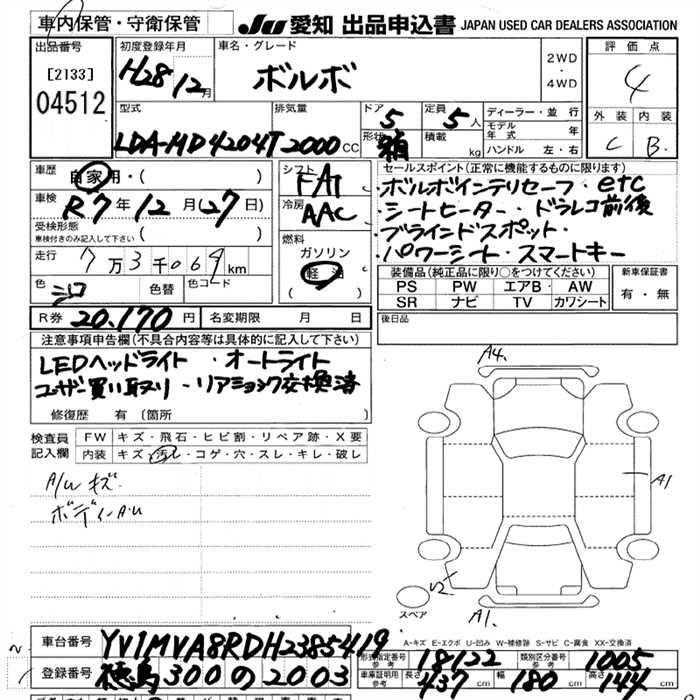 車内保管・守衛保管
JU 愛知 出品申込書 JAPAN USED CAR DEALERS ASSOCIATION
出品番号
[2133]
04512
初度登録年月
H28 12月
車名・グレード
ボルボ
2WD
・
4WD
評価点
4
外装 内装
C B
型式
LDA-MD4204T
排気量
2000 CC
ドア
5
形状
箱
定員
5人
積載
kg
ディーラー・並行
モデル年式 年
ハンドル 左・右
車歴
自家用・( )
車検
R7年12月(27日)
受検形態
車検付きのみ記入して下さい
走行
7万3千069km
色
シロ
色替
色コード
シフト
FAT
冷房
AAC
燃料
ガソリン
軽油
( )
セールスポイント(正常に機能するものに限ります)
・ボルボインテリセーフ・etc
・シートヒーター・ドラレコ前後
・ブラインドスポット・
・パワーシート・スマートキー
装備品(純正品に限り○をつけてください)
PS PW エアB AW
SR ナビ TV カワシート
新車保証書
有・無
後日品
R券 20,170円
名変期限 月 日
注意事項申告欄(不具合内容等は具体的に記入して下さい)
LEDヘッドライト・オートライト
ユーザー買い取り・リアショック交換済
修復歴 有(箇所 )
検査員
記入欄
FW キズ・飛石・ヒビ割・リペア跡・X要
内装 キズ・汚レ・コゲ・穴・スレ・キレ・破レ
A/Uキズ
ボディーA・U
A4.
A1
A1.
スペア
A-キズ E-エクボ U-凹み W-補修跡 S-サビ C-腐食 XX-交換済
車台番号 YV1MVA8RDH2385419
登録番号 徳島 300 の 2003
型式指定番号
参考
18122
類別区分番号
参考
1005
車庫証明用
参考
長さ 437cm 幅 180cm 高さ 144cm